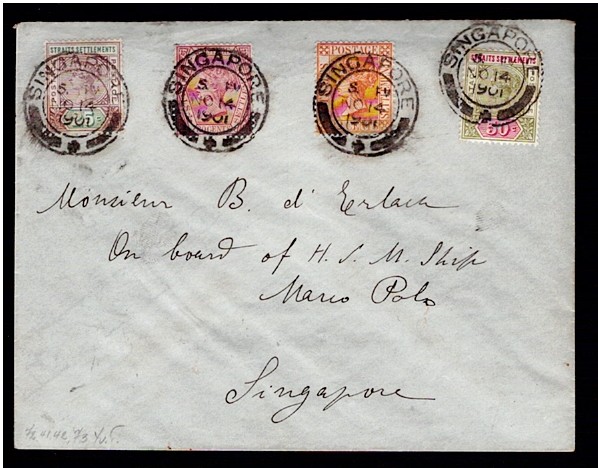 STRAITS SETTLEMENTS POSTAGE STRAITS SETTLEMENTS
SINGAPORE SINGAPORE SINGAPORE SINGAPORE
NO 14 NO 14 NO 14 NO 14
1901 1901 1901 1901
50c
Monsieur B. d'Erlach
On board of H. S. M. Ship
Marco Polo
Singapore